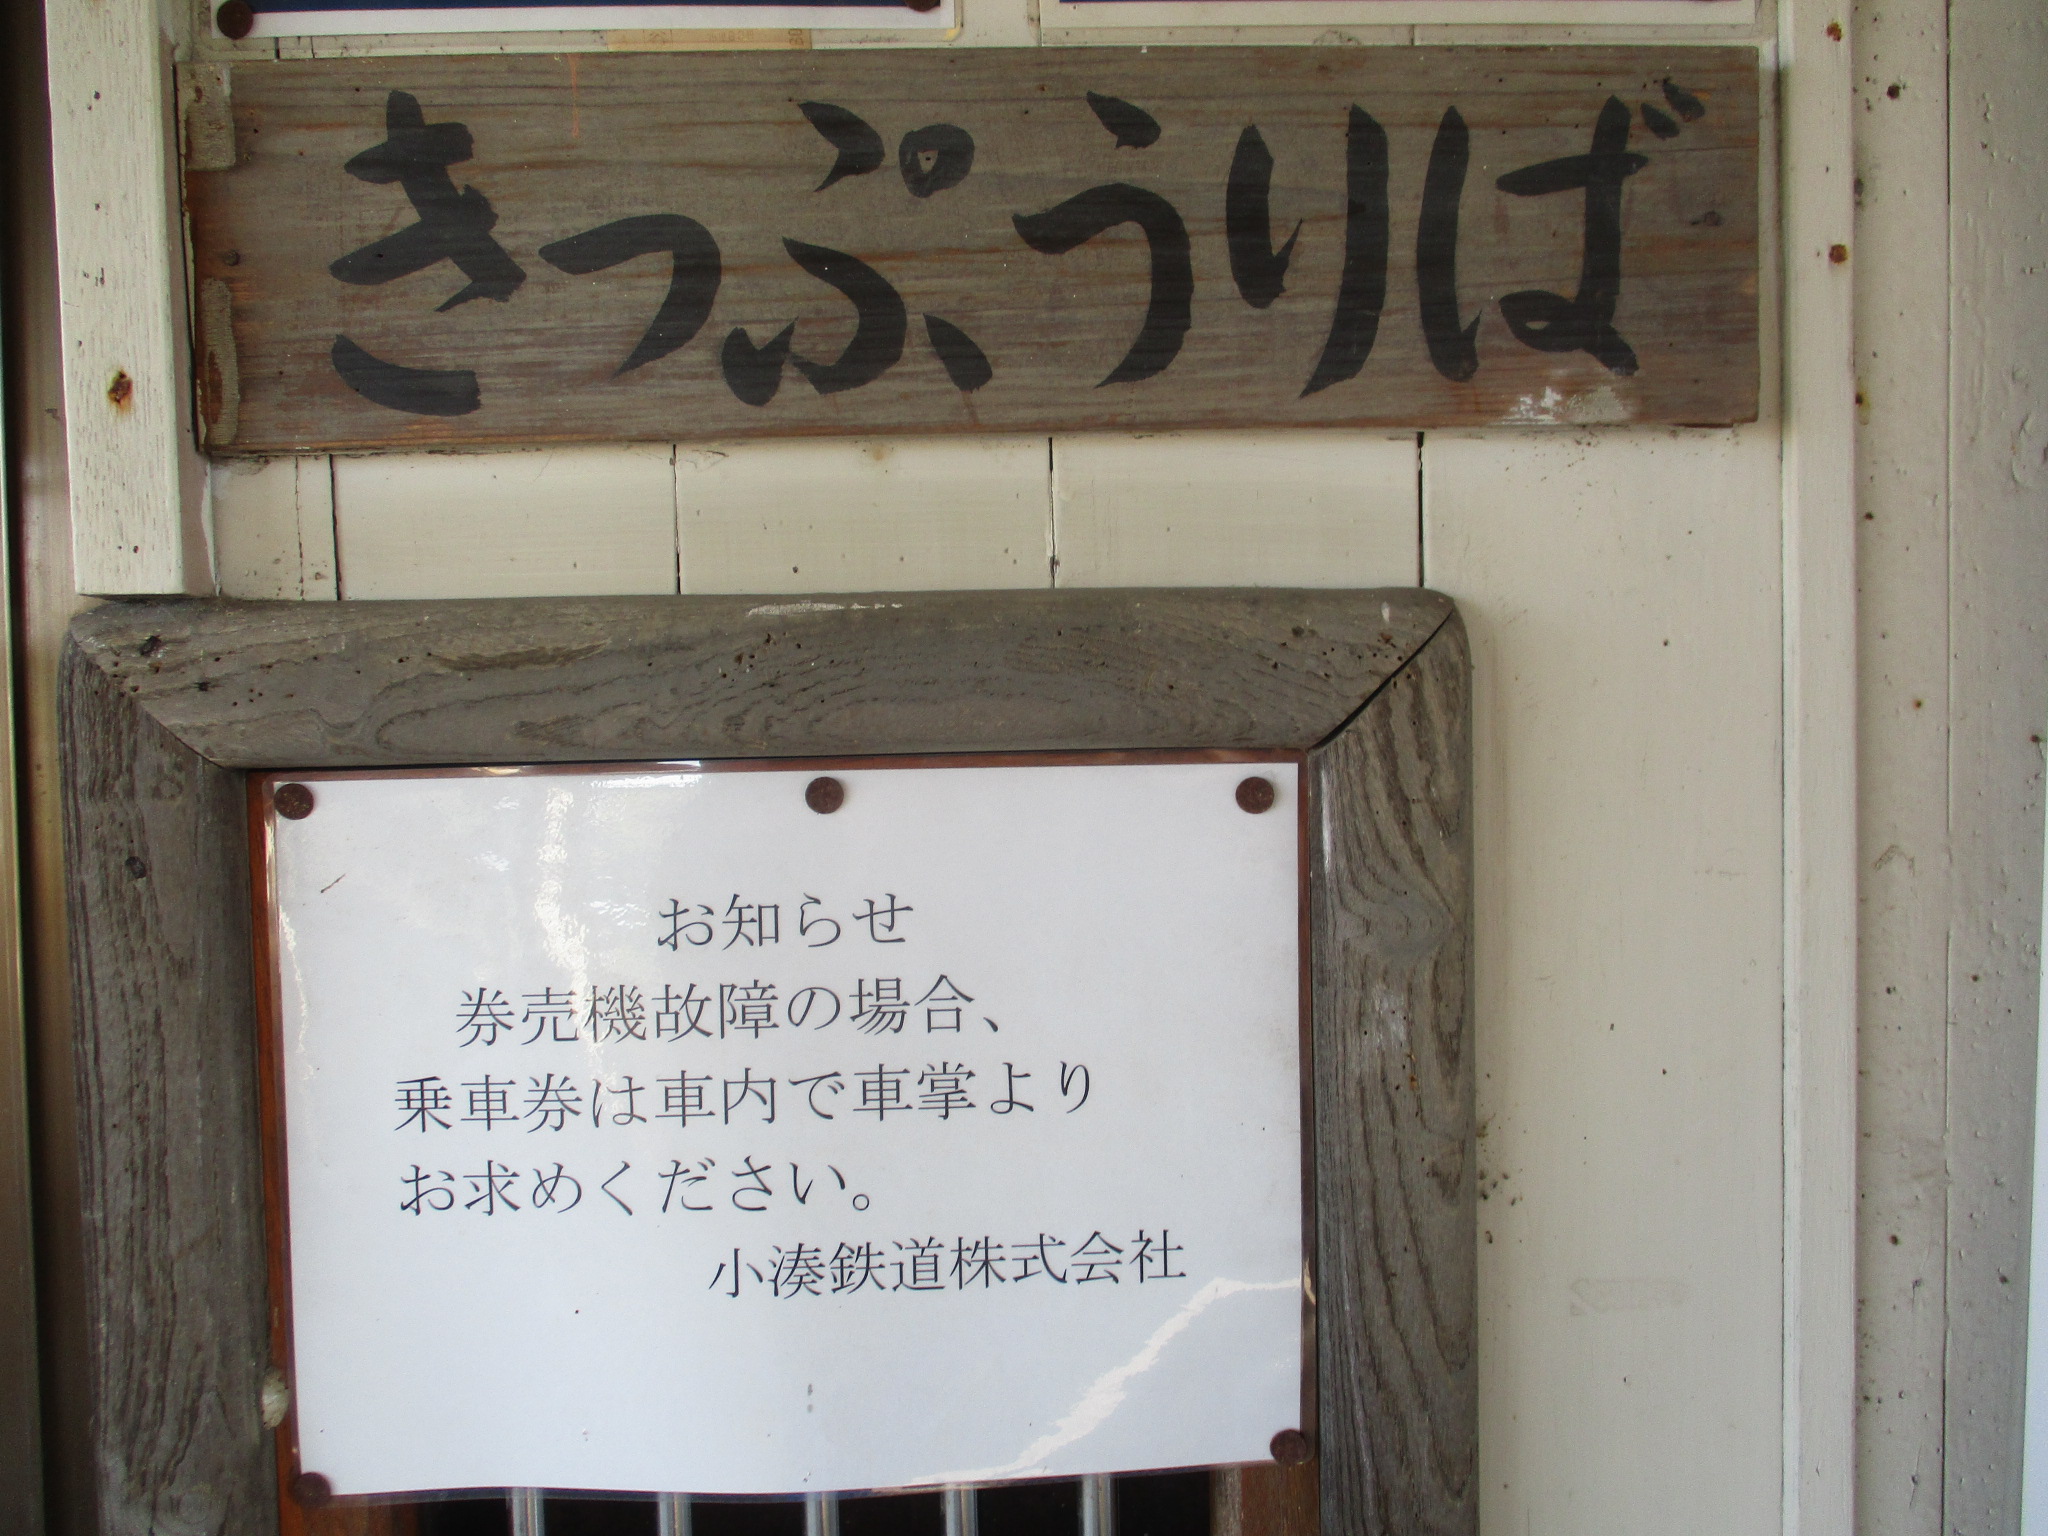 きっぷうりば
お知らせ
券売機故障の場合、
乗車券は車内で車掌より
お求めください。
小湊鉄道株式会社